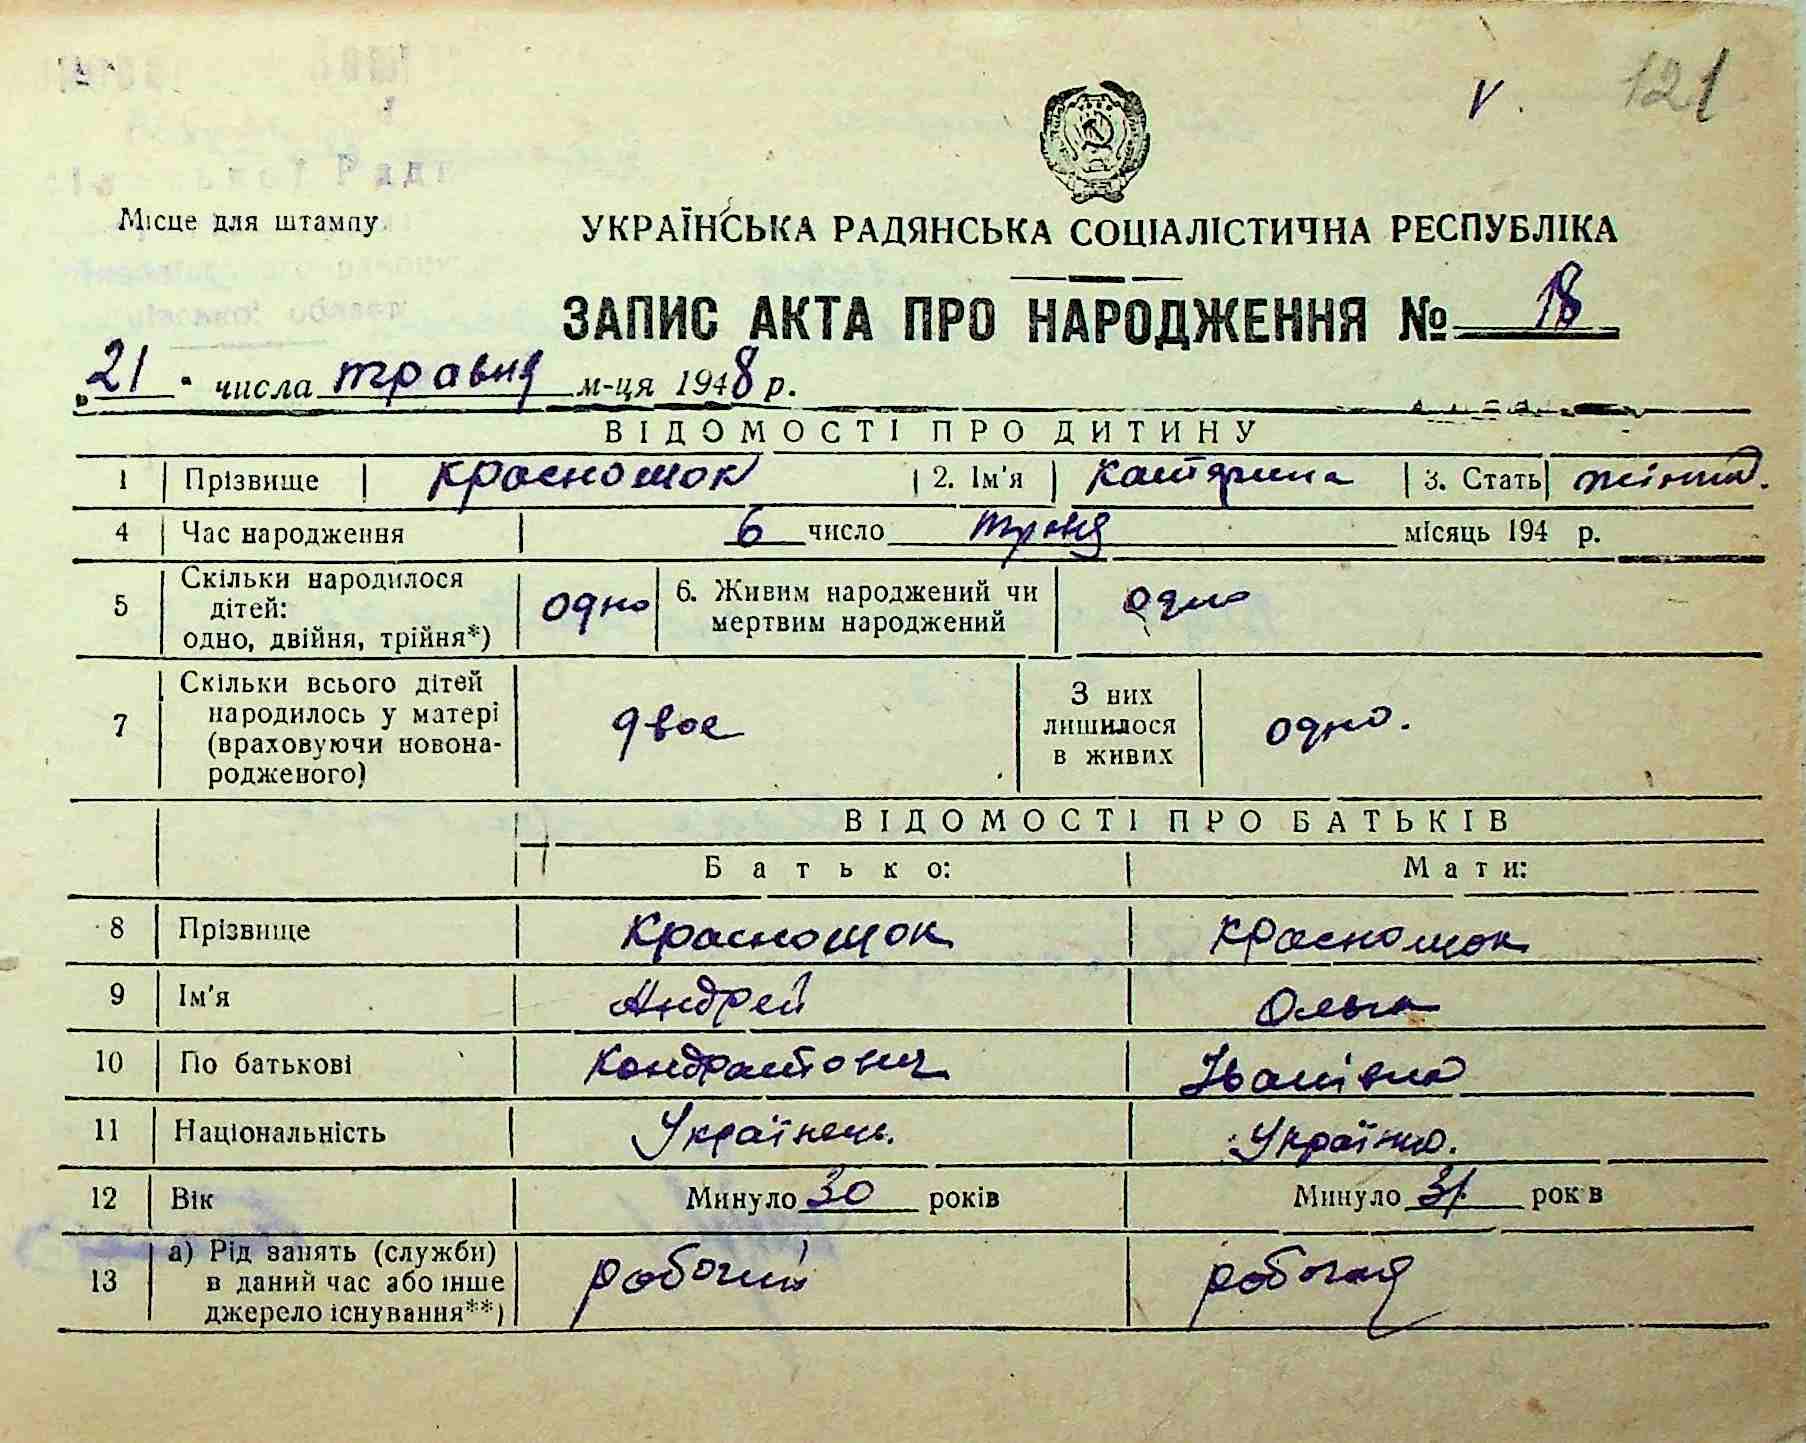 V. 121
Місце для штампу
УКРАЇНСЬКА РАДЯНСЬКА СОЦІАЛІСТИЧНА РЕСПУБЛІКА
ЗАПИС АКТА ПРО НАРОДЖЕННЯ № 18
„21" числа травня м-ця 1948 р.
ВІДОМОСТІ ПРО ДИТИНУ
1 Прізвище Краснощок 2. Ім'я Катярина 3. Стать
4 Час народження 6 число місяць 194 р.
5 Скільки народилося
дітей:
одно, двійня, трійня*) одно 6. Живим народжений чи
мертвим народжений одно
7 Скільки всього дітей
народилось у матері
(враховуючи новона-
родженого) двое З них
лишилося
в живих одно.
ВІДОМОСТІ ПРО БАТЬКІВ
Батько: Мати:
8 Прізвище Краснощок Краснощок
9 Ім'я Андрей Ольга
10 По батькові Кондратович Іванівна
11 Національність Українець. Українка.
12 Вік Минуло 30 років Минуло 31 років
13 а) Рід занять (служби)
в даний час або інше
джерело існування**) робочий робочая